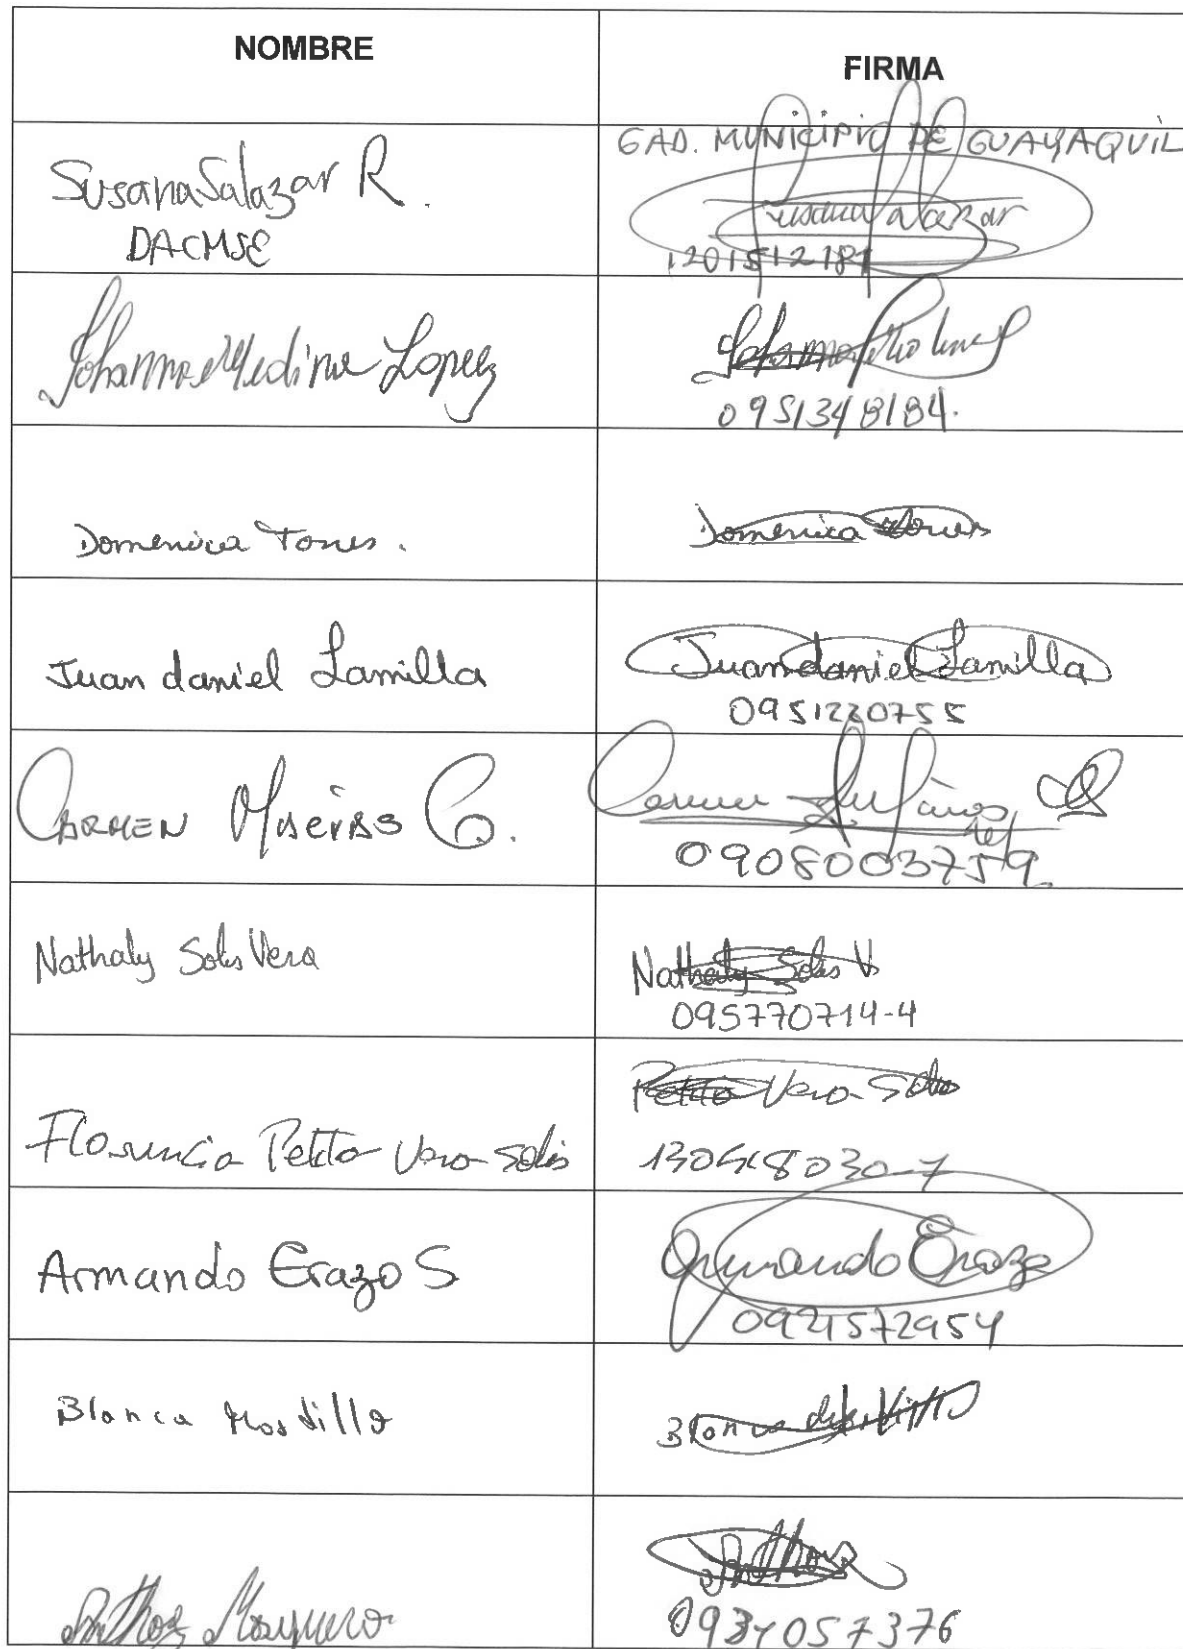 NOMBRE
FIRMA
Susana Salazar R.
DACMSE
GAD. MUNICIPIO DE GUAYAQUIL
Susana Salazar
Johanna Medina Lopez
0951348184.
Domenica Torres.
Domenica Torres
Juan daniel Lamilla
Juan daniel Lamilla
0951220755
CARMEN C.
Carmen
0908003759
Nathaly Solis Vera
Nathaly Solis V
095770714-4
Florencia Petita Vera Solis
Petita Vera Solis
Armando Erazo S
Armando Erazo
0921572954
Blanca
Blanca